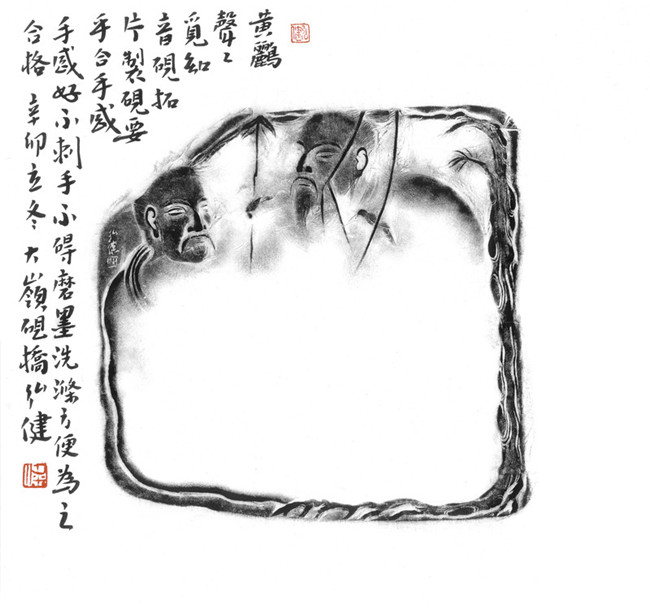 黄鸝
聲聲
覓知
音硯拓
片製硯要
手合手感
手感好不刺手不碍磨墨洗滌方便為之
合格 辛卯立冬 大嶺硯橋弘健